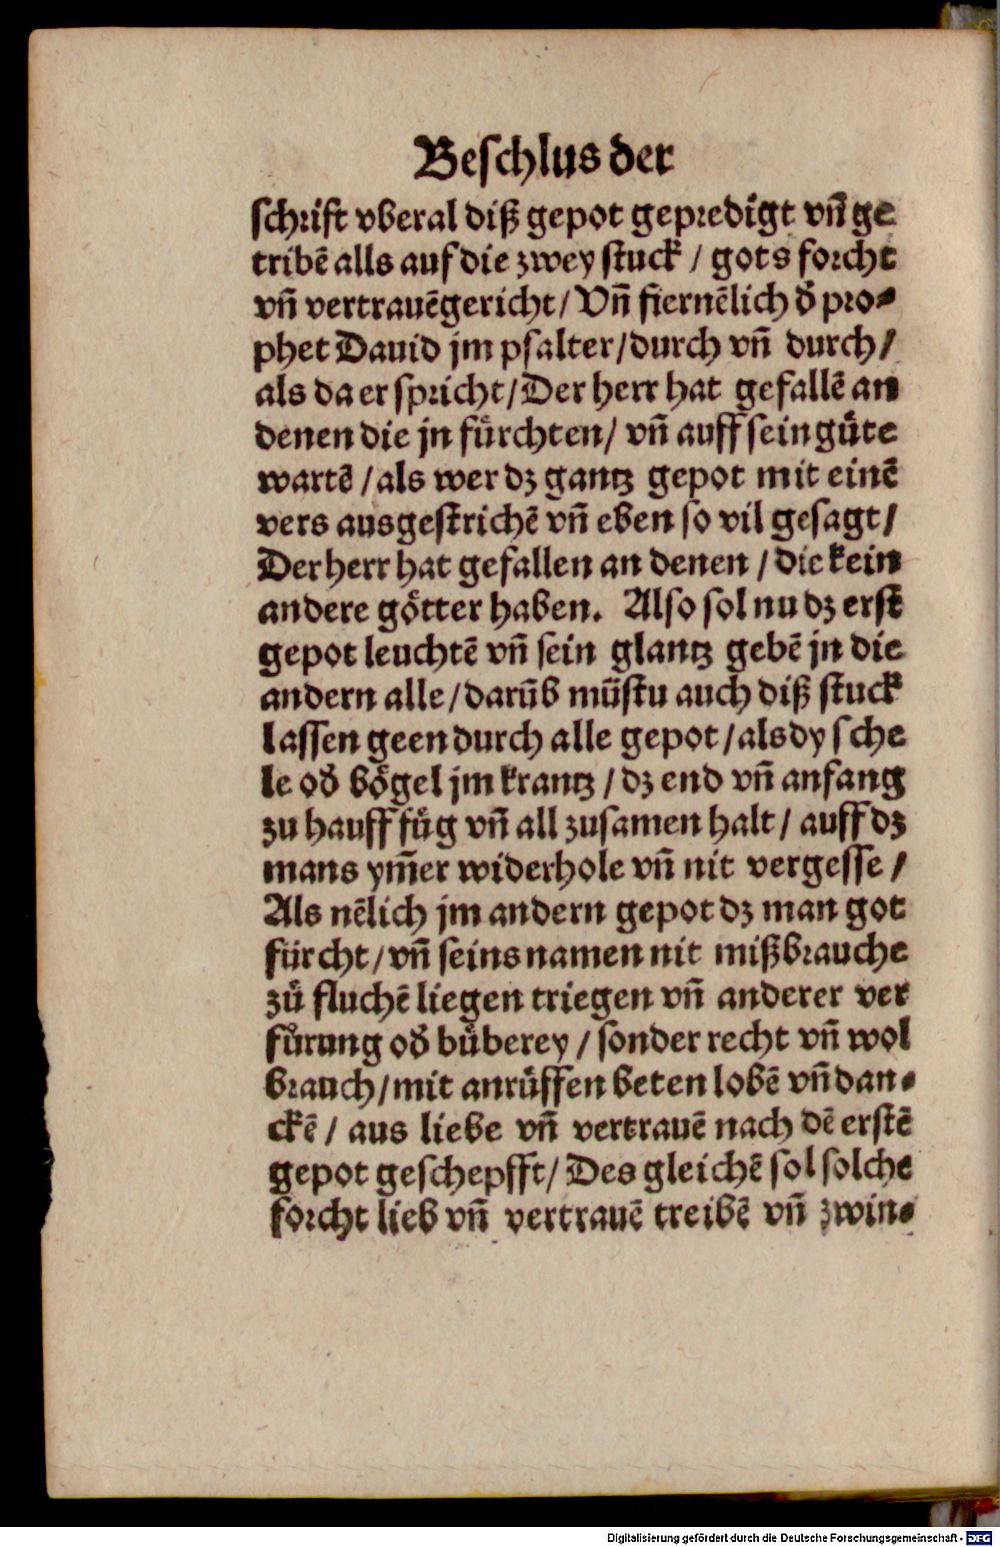 Beschlus der
schrift vberal diß gepot gepredigt vñ ge
tribē alls auf die zwey stuck / gots forcht
vñ vertrauē gericht / Vñ fiernēlich d̕ pro⸗
phet Dauid jm psalter / durch vñ durch /
als da er spricht / Der herr hat gefallē an
denen die jn fuͤrchten / vñ auff sein guͤte
wartē / als wer dz gantz gepot mit einē
vers ausgestrichē vñ eben so vil gesagt /
Der herr hat gefallen an denen / die kein
andere goͤtter haben. Also sol nu dz erst̄
gepot leuchtē vñ sein glantz gebē jn die
andern alle / darūb muͤstu auch diß stuck
lassen geen durch alle gepot / als dy sche
le od̕ boͤgel jm krantz / dz end vñ anfang
zu hauff fuͤg vñ all zusamen halt / auff dz
mans ym̄er widerhole vñ nit vergesse /
Als nēlich jm andern gepot dz man got
fürcht / vñ seins namen nit mißbrauche
zuͤ fluchē liegen triegen vñ anderer ver
fuͤrung od̕ buͤberey / sonder recht vñ wol
brauch / mit anruͤffen beten lobē vñ dan⸗
ckē / aus liebe vñ vertrauē nach dē erstē
gepot geschepfft / Des gleichē sol solche
forcht lieb vñ vertrauē treibē vñ zwin⸗
Digitalisierung gefördert durch die Deutsche Forschungsgemeinschaft - DFG